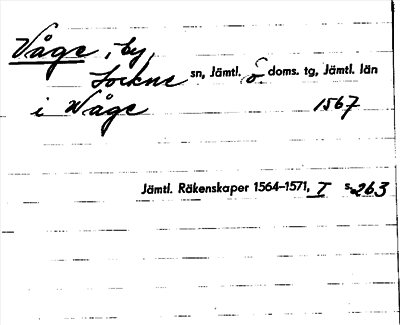 Våge, by,
Lockne sn, Jämtl. ö doms. tg, Jämtl. län
i Wåge 1567
Jämtl. Räkenskaper 1564–1571, I s. 263